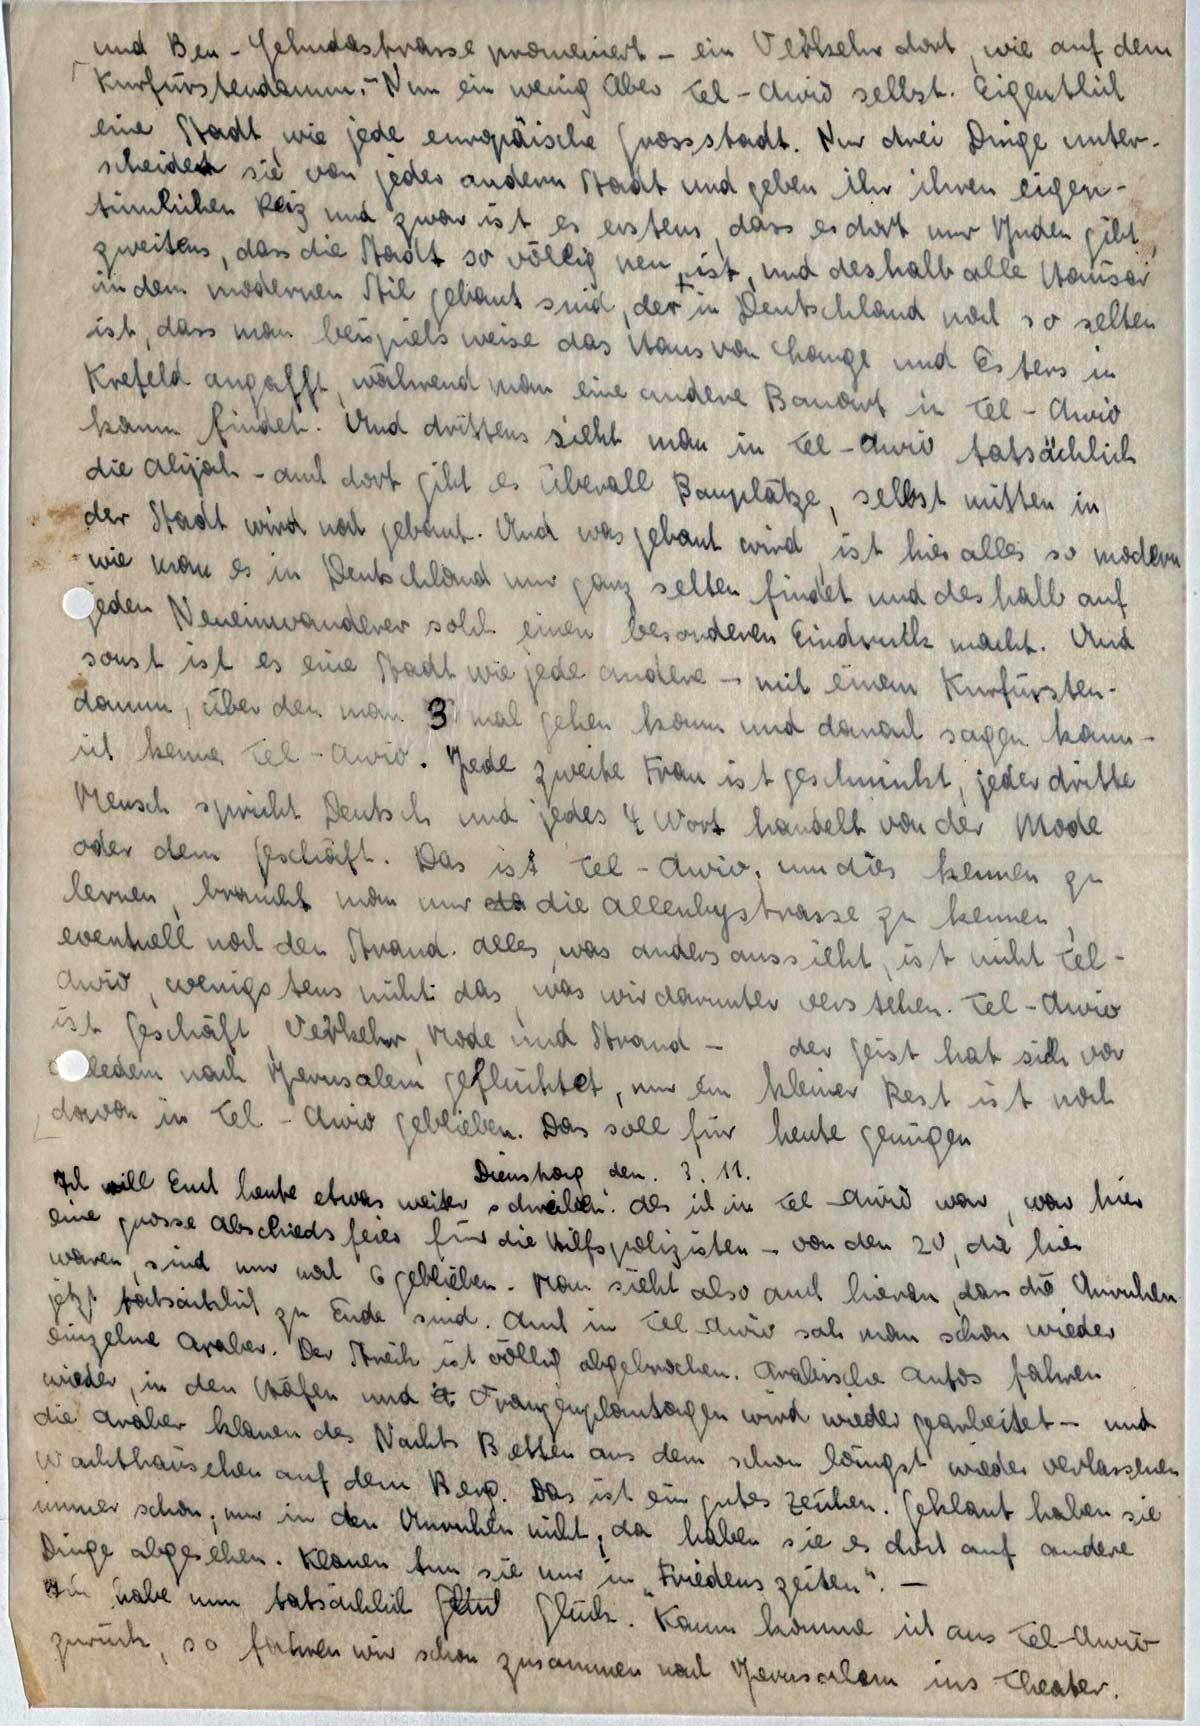 und Ben-Jehudastrasse promeniert – ein Verkehr dort, wie auf dem
Kurfürstendamm. – Nun ein wenig über Tel-Awiv selbst. Eigentlich
eine Stadt wie jede europäische Grossstadt. Nur drei Dinge unter-
scheiden sie von jeder andern Stadt und geben ihr ihren eigen-
tümlichen Reiz und zwar ist es erstens, dass es dort nur Juden gibt,
zweitens, dass die Stadt so völlig neu ist, und deshalb alle Häuser
in dem modernen Stil gebaut sind, der in Deutschland noch so selten
ist, dass man beispielsweise das Haus von Lange und Esters in
Krefeld angafft, während man eine andere Bauart in Tel-Awiv
kaum findet. Und drittens sieht man in Tel-Awiv tatsächlich
die Alijah – auch dort gibt es überall Bauplätze, selbst mitten in
der Stadt wird noch gebaut. Und was gebaut wird, ist hier alles so modern
wie man es in Deutschland nur ganz selten findet und deshalb auf
jeden Neueinwanderer solch einen besonderen Eindruck macht. Und
sonst ist es eine Stadt wie jede andere – mit einem Kurfürsten-
damm, über den man 3 mal gehen kann und danach sagen kann –
ich kenne Tel-Awiv. Jede zweite Frau ist geschminkt, jeder dritte
Mensch spricht Deutsch und jedes 4 Wort handelt von der Mode
oder dem Geschäft. Das ist Tel-Awiv, um dies kennen zu
lernen, braucht man nur die Allenbystrasse zu kennen,
eventuell noch den Strand. Alles, was anders aussieht, ist nicht Tel-
Awiv, wenigstens nicht das, was wir darunter verstehen. Tel-Awiv
ist Geschäft, Verkehr, Mode und Strand – der Geist hat sich vor
alledem nach Jerusalem geflüchtet, nur ein kleiner Rest ist noch
davon in Tel-Awiv geblieben. Das soll für heute genügen
Dienstag den. 3. 11.
Ich will Euch heute etwas weiter schreiben. Als ich in Tel-Awiv war, war hier
eine grosse Abschiedsfeier für die Hilfspolizisten – von den 20, die hier
waren, sind nur noch 6 geblieben. Man sieht also auch hieran, dass die Unruhen
jetzt tatsächlich zu Ende sind. Auch in Tel-Awiv sah man schon wieder
einzelne Araber. Der Streik ist völlig abgebrochen. Arabische Autos fahren
wieder, in den Häfen und Orangenplantagen wird wieder gearbeitet – und
die Araber klauen des Nachts Betten aus dem schon längst wieder verlassenen
Wachthäuschen auf dem Berg. Das ist ein gutes Zeichen. Geklaut haben sie
immer schon, nur in den Unruhen nicht, da haben sie es dort auf andere
Dinge abgesehen. Klauen tun sie nur in „Friedenszeiten“. –
Ich habe nun tatsächlich Glück. Kaum komme ich aus Tel-Awiv
zurück, so fahren wir schon zusammen nach Jerusalem ins Theater.